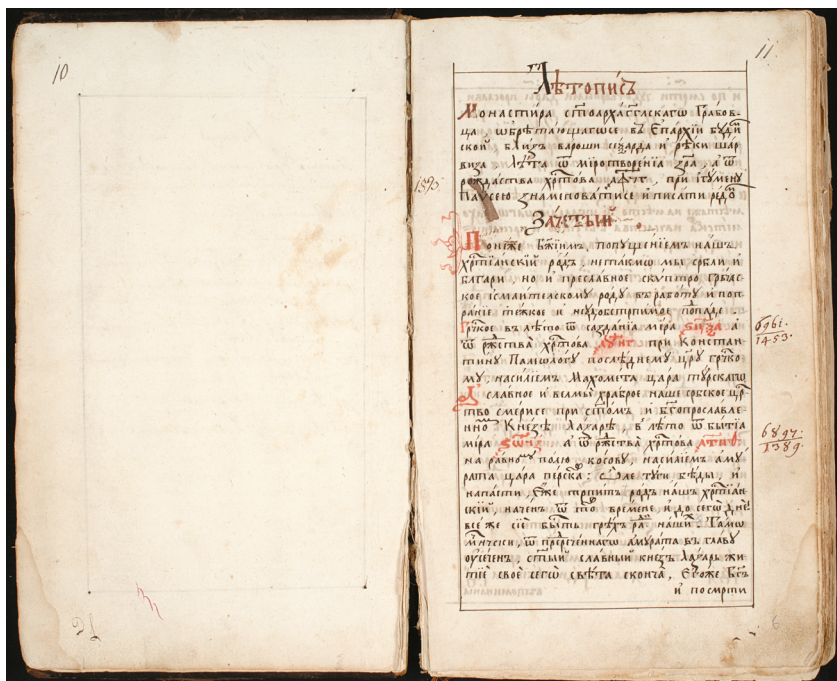 10
11.
Лѣтопис
Монастира с҃тоархаг҃гл҃скагѡ Грабов-
ца, ѡбрѣтающагѡсе въ Епархїи Будӥ
ской близъ вароши и рѣки Шар
виза, Лѣта ѿ миротворенїа а ѿ
рождаства хр҃това при Игумену
Паѵсею знаменоватисе и писати
1595
Зачетый
Понеже Бж҃їимъ попущенїемъ нашъ
хр҃тїанскїй родъ, нетакмѡ мы србли и
блгари, но и преславное скуптро грьчс
кое ісмаилтескому роду въ работу и поп
ранїе тѣжкое и неудобстрпимое попаде.
Грчкое въ лѣто ѿ созданїа мїра а
ѿ рж҃ства хр҃това при Констан
тину Палеѡлогу послѣднему цр҃у гручко
му, насилїемъ Махомета цара турскагѡ
славное и велмы храброе наше србское цр҃
тво смерисе при с҃томъ и бг҃опрославле
нно Кнезѣ Лазарѣ, в лѣто ѿ бытїа
мїра а ѿ рж҃ства хр҃това
на равному полю косову, насилїемъ аму
рата цара перска: Ѿ лѣ тугы бѣды, и
напасти, Еже трпитъ родъ нашъ хр҃тїан
скїй начен ѿ то времене и до сегѡ дне!
все же сїе бысть грѣх ра наши: Тамѡ
мч҃нчски, ѿ прер҃ченнагѡ амурата въ главу
оусѣченъ, с҃тый славный кнезъ Лазаръ жи
тїе свое сегѡ свѣта сконча, Егоже Бг҃ъ
и по смрти
6961.
1453.
6897:
1389.
6